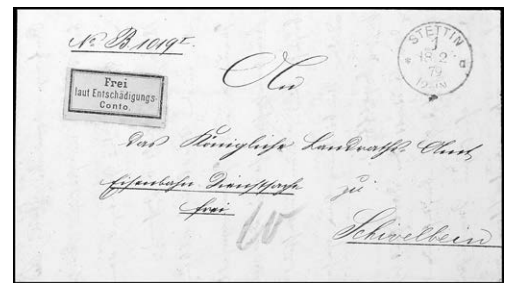 No. B. 1019I.
STETTIN
1
18 2
79
Frei
laut Entschädigungs-
Conto.
An
das Königliche Landraths-Amt
Eisenbahn Dienstsache
zu
frei
10
Schivelbein